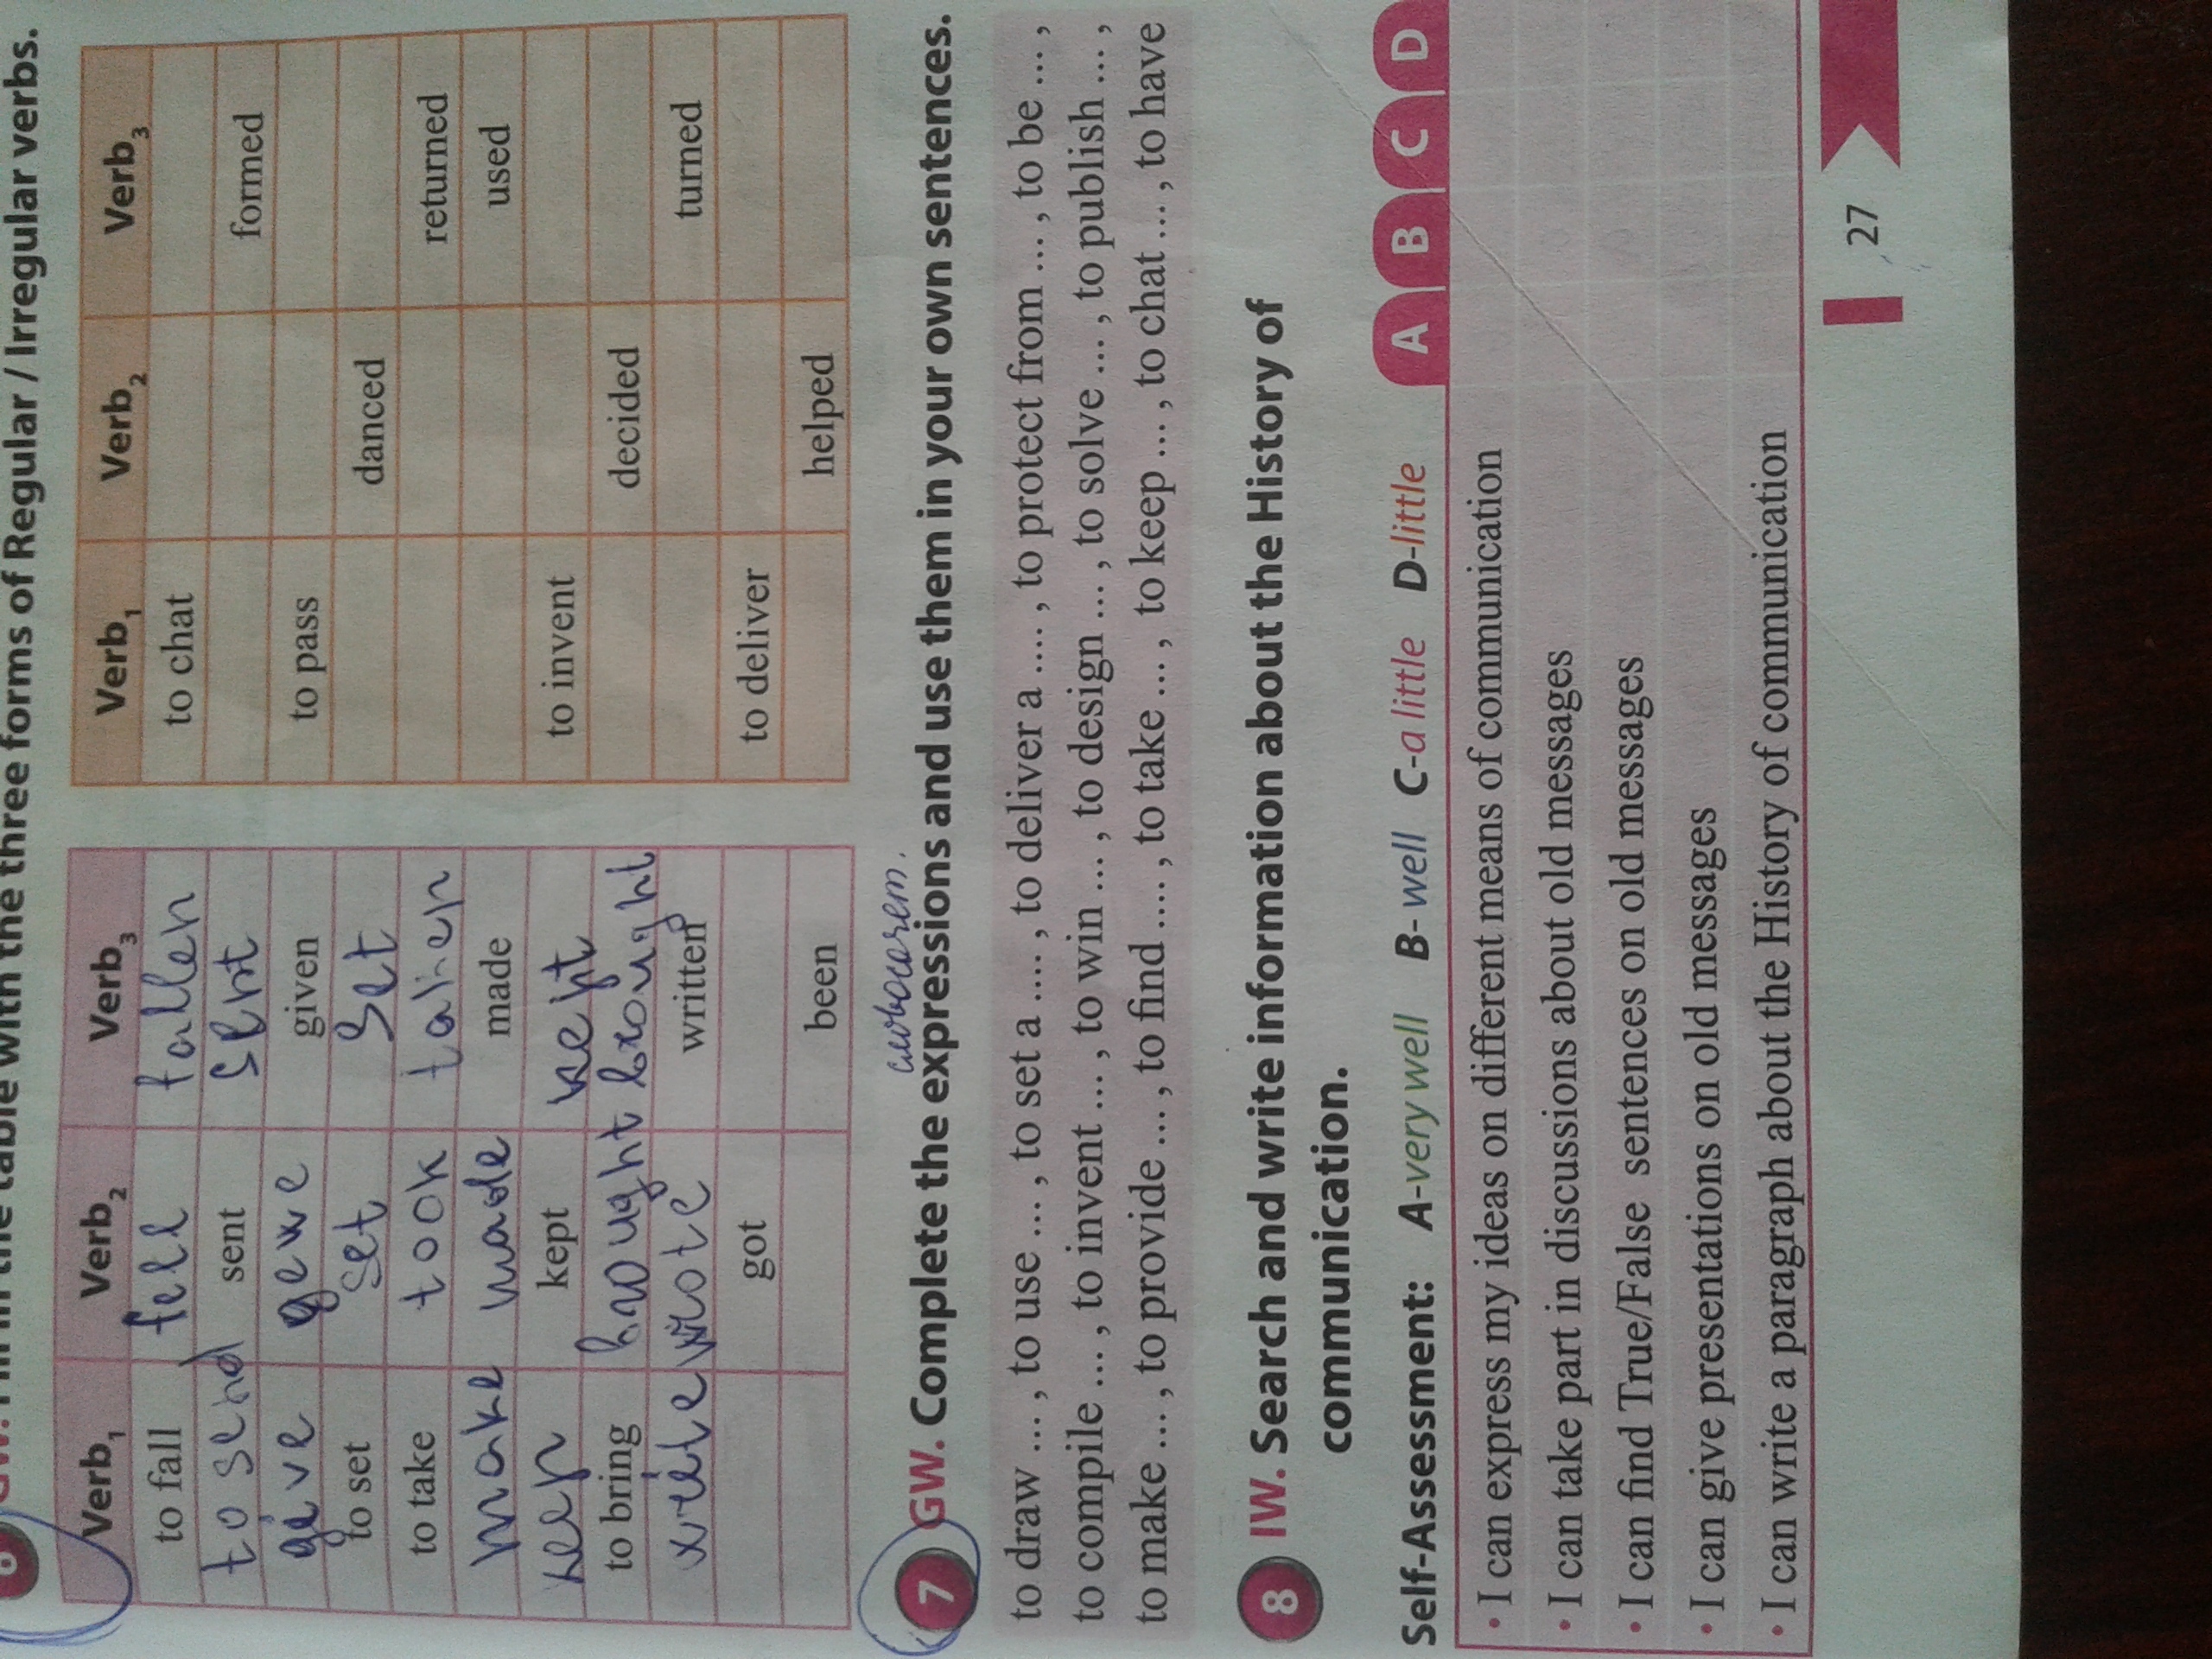 in the table with the three forms of Regular / Irregular verbs.
Verb1 Verb2 Verb3
to fall fell fallen
to send sent sent
give gewe given
to set set set
to take took taken
make made made
keep kept kept
to bring brought brought
write wrote written
got
been
Verb1 Verb2 Verb3
to chat
formed
to pass
danced
returned
used
to invent
decided
turned
to deliver
helped
7 GW. Complete the expressions and use them in your own sentences.
to draw ... , to use ... , to set a .... , to deliver a .... , to protect from ... , to be ... ,
to compile ... , to invent ... , to win ... , to design ... , to solve ... , to publish ... ,
to make ... , to provide ... , to find .... , to take ... , to keep ... , to chat ... , to have
8 IW. Search and write information about the History of
communication.
Self-Assessment: A-very well B- well C-a little D-little A B C D
• I can express my ideas on different means of communication
• I can take part in discussions about old messages
• I can find True/False sentences on old messages
• I can give presentations on old messages
• I can write a paragraph about the History of communication
27